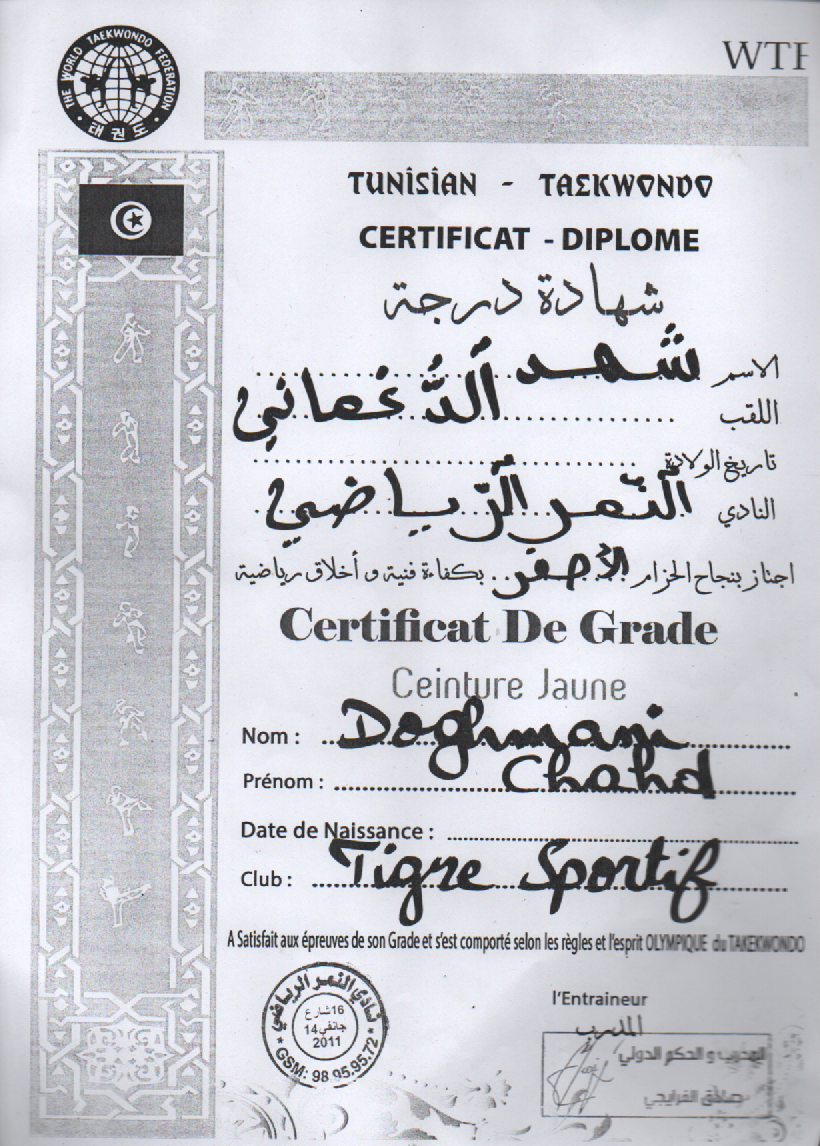 THE WORLD TAEKWONDO FEDERATION
태권도
WTF
TUNISIAN - TAEKWONDO
CERTIFICAT - DIPLOME
شهادة درجة
الاسم شهد
اللقب الدّغماني
تاريخ الولادة
النادي النّمر الرّياضي
اجتاز بنجاح الحزام الأصفر بكفاءة فنية و أخلاق رياضية
Certificat De Grade
Ceinture Jaune
Nom : Doghmani
Prénom : Chahd
Date de Naissance :
Club : Tigre Sportif
A Satisfait aux épreuves de son Grade et s'est comporté selon les règles et l'esprit OLYMPIQUE du TAKEKWONDO
نادي النمر الرياضي
16 شارع
14 جانفي
2011
GSM: 98.95.95.72
l'Entraineur
المدرب
المدرب و الحكم الدولي
صادق الفرايجي